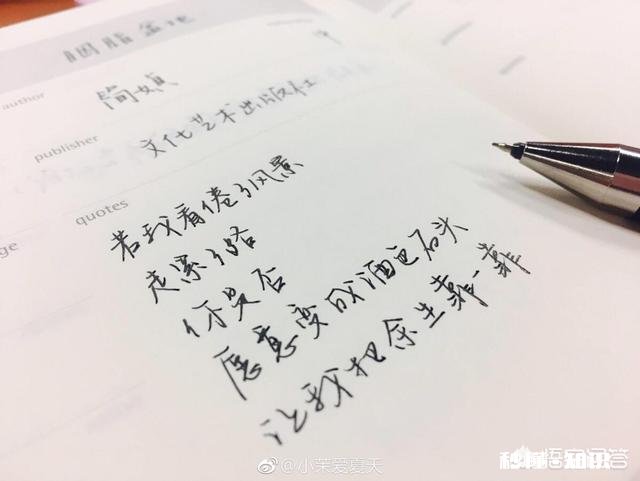 胭脂盆地
author 简媜
publisher 文化艺术出版社
quotes
若我看倦了风景
走累了路
你是否
愿意变成酒色石头
让我把余生靠一靠
ge
@小茉爱夏天
悟空问答